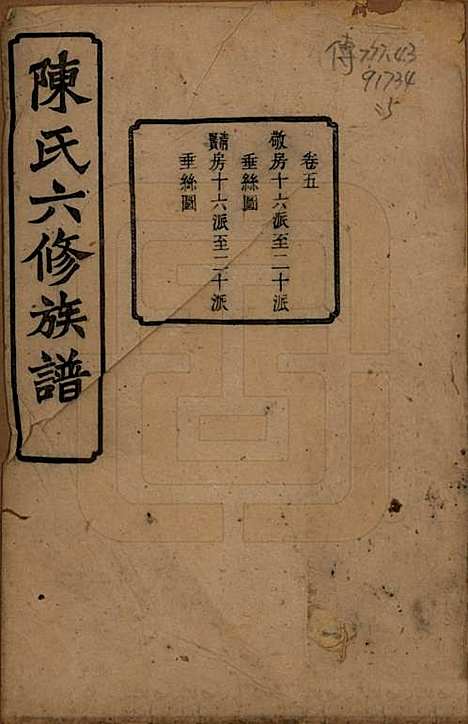 陳氏六修族譜
卷五
敬房十六派至二十派
垂絲圖
清賢房十六派至二十派
垂絲圖
傳777.43
91734
:5